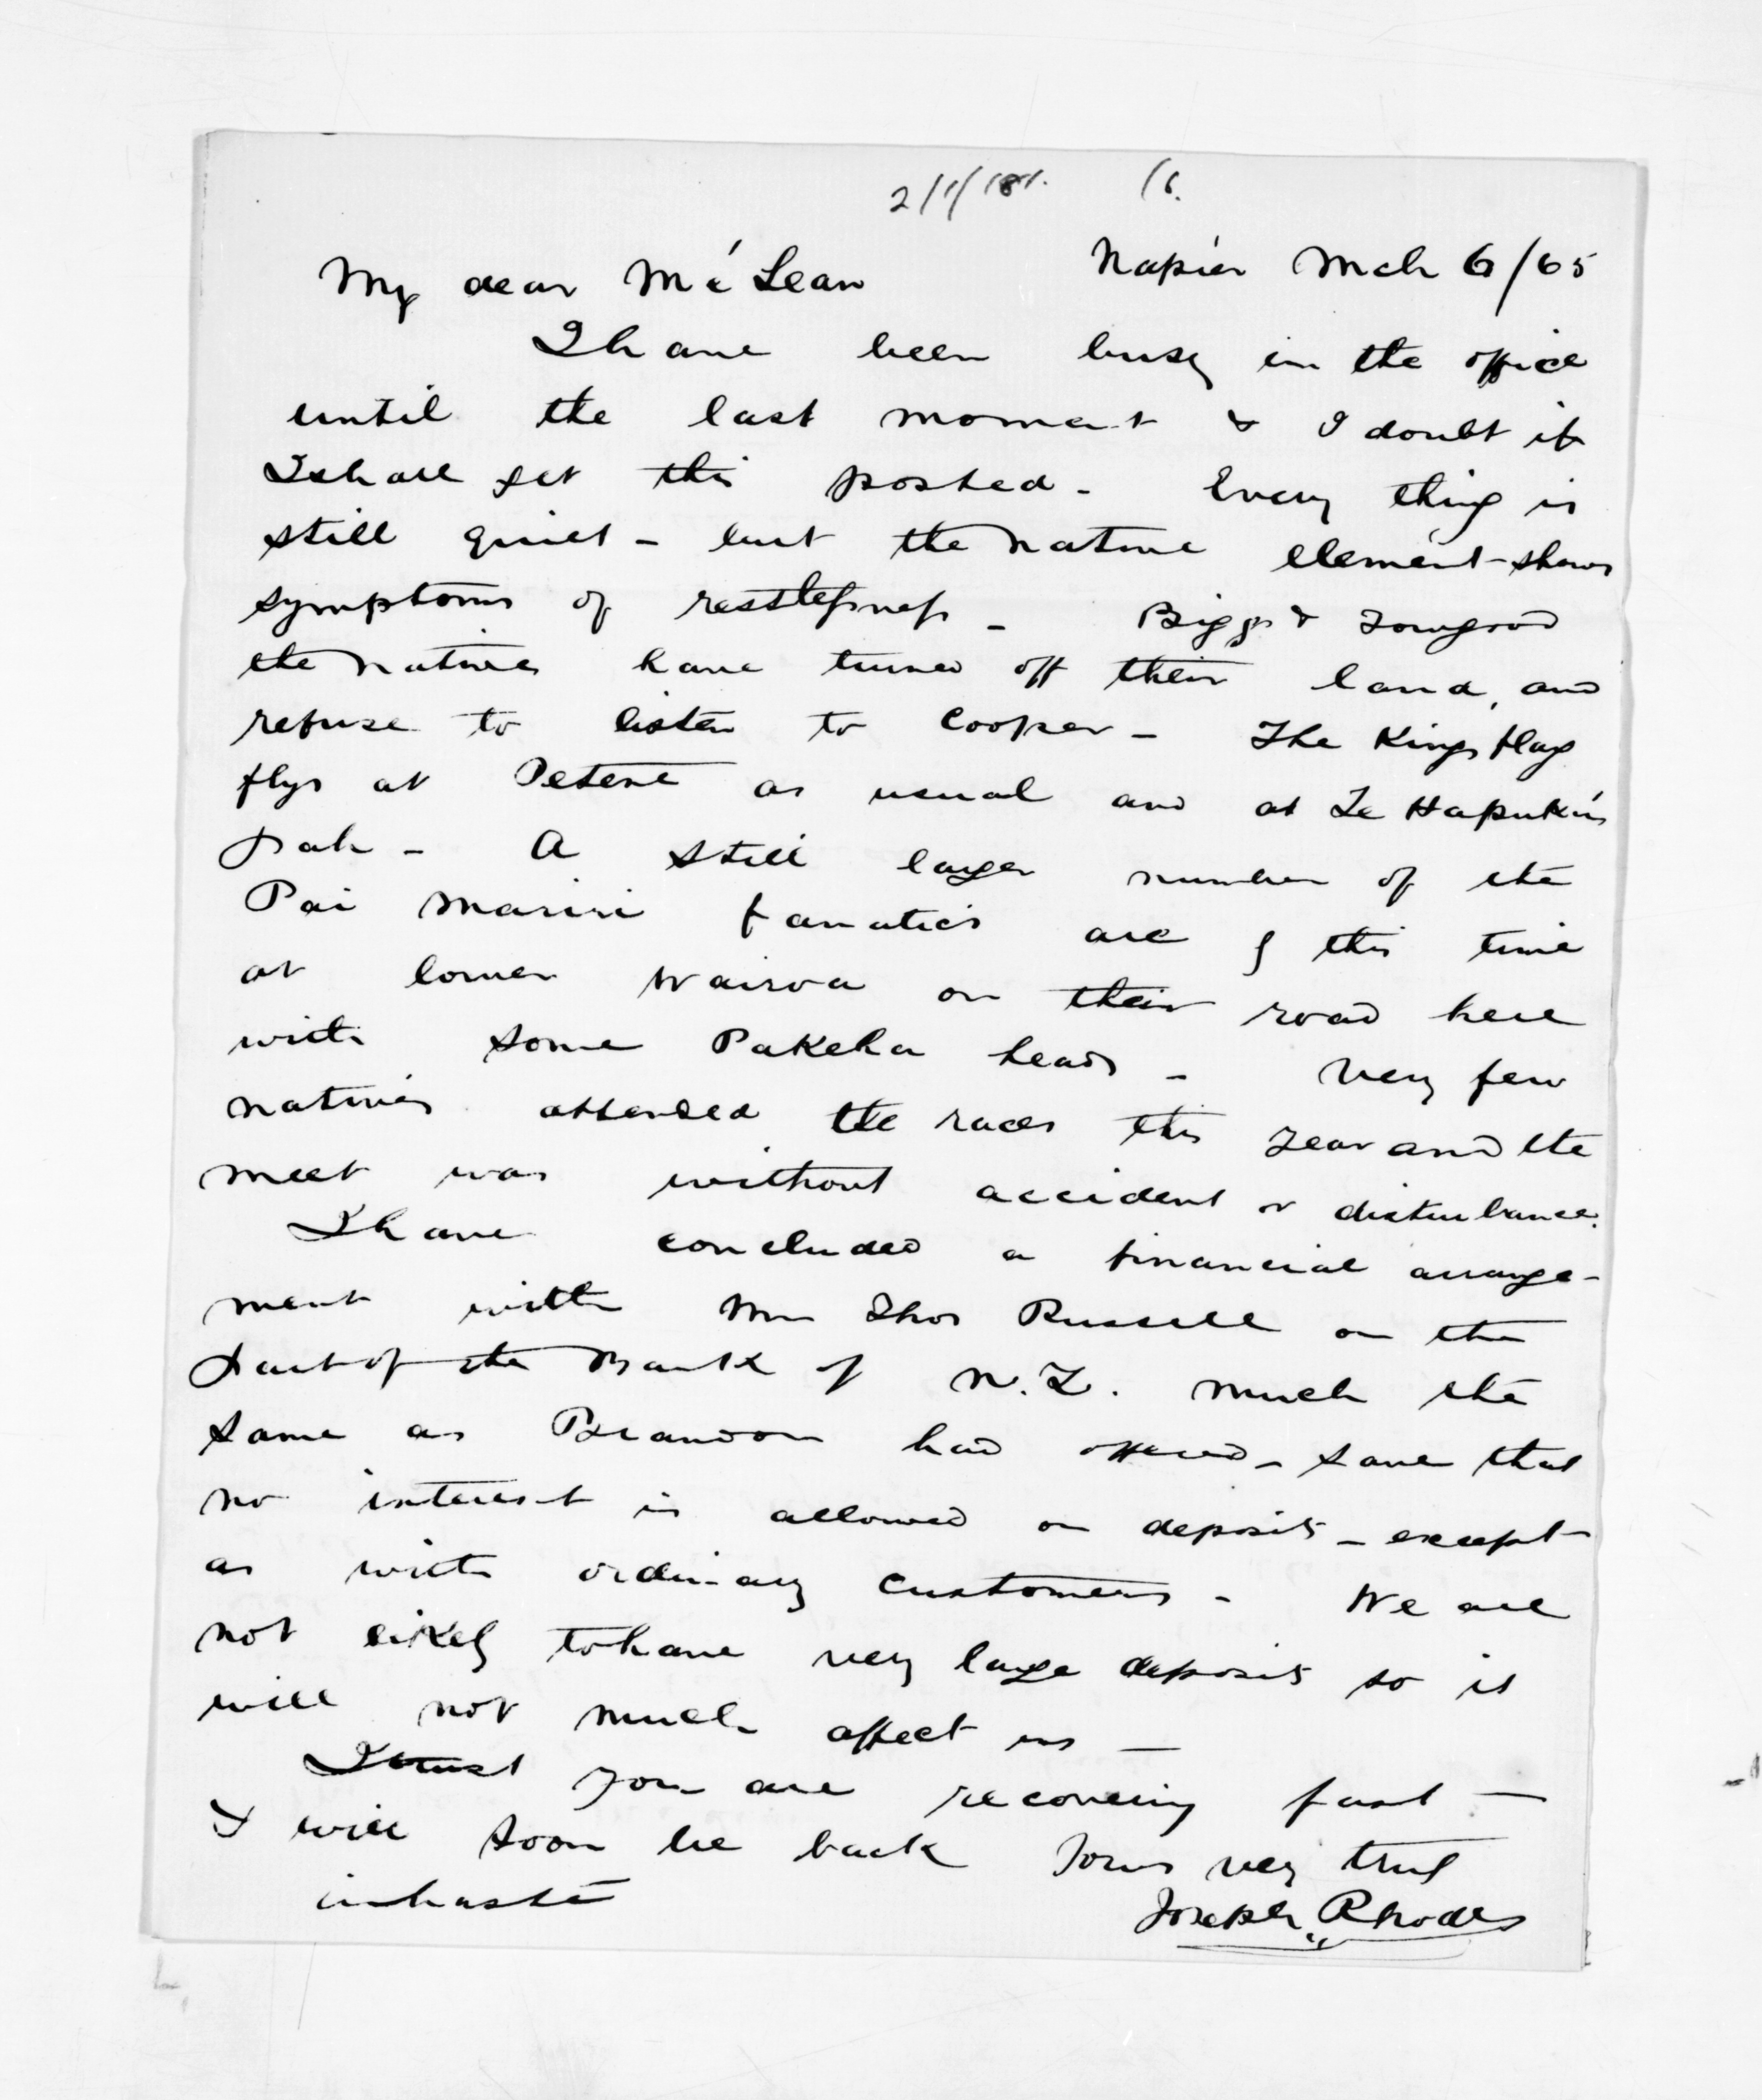 2/1/181. 16.
Napier Mch 6/65
My dear McLean
I have been busy in the office
until the last moment & I doubt if
I shall get this posted - Every thing is
still quiet - but the native element - shows
symptoms of resstlessness - Biggs & Towgood
the natives have turned off their land, and
refuse to listen to Cooper - The Kings flag
flys at Petene as usual and at Te Hapuku's
pah - A still larger number of the
Pai Mariri fanatics are by this time
at lower Wairoa on their road here
with some Pakeha heads - Very few
natives attended the races this year and the
meet was without accident or disturbance.
I have concluded a financial arrange-
ment with Mr Thos Russell on the
part of the Bank of N.Z. much the
same as Brandon had offered - save that
no interest is allowed on deposits - except
as with ordinary customers - We are
not likely to have very large deposits so it
will not much affect us -
I trust you are recovering fast -
& will soon be back Yours very truly
in haste
Joseph Rhodes